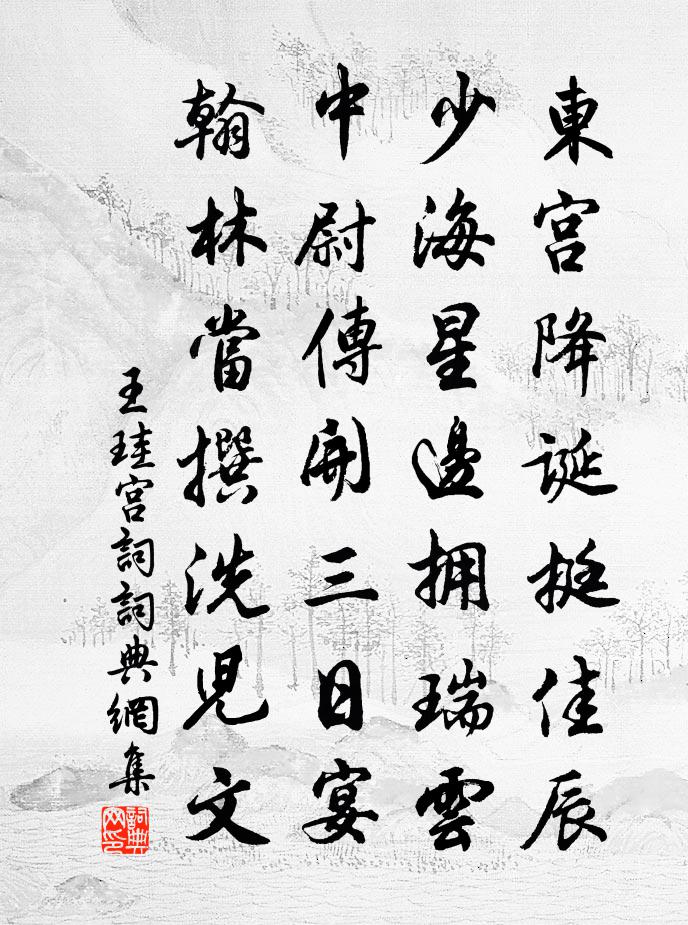 東宮降誕挺佳辰
少海星邊拥瑞雲
中尉傳聞三日宴
翰林當撰洗兒文
王珪宮詞詞典網集
詞典
网印